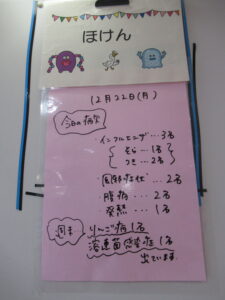 ほけん
12月22日(月)
今日の病欠
・インフルエンザ・・・3名
そら・・・1名
つき・・・2名
・風邪症状・・・2名
・腹痛・・・2名
・発熱・・・1名
週末
りんご病 1名
溶連菌感染症 1名
出ています。